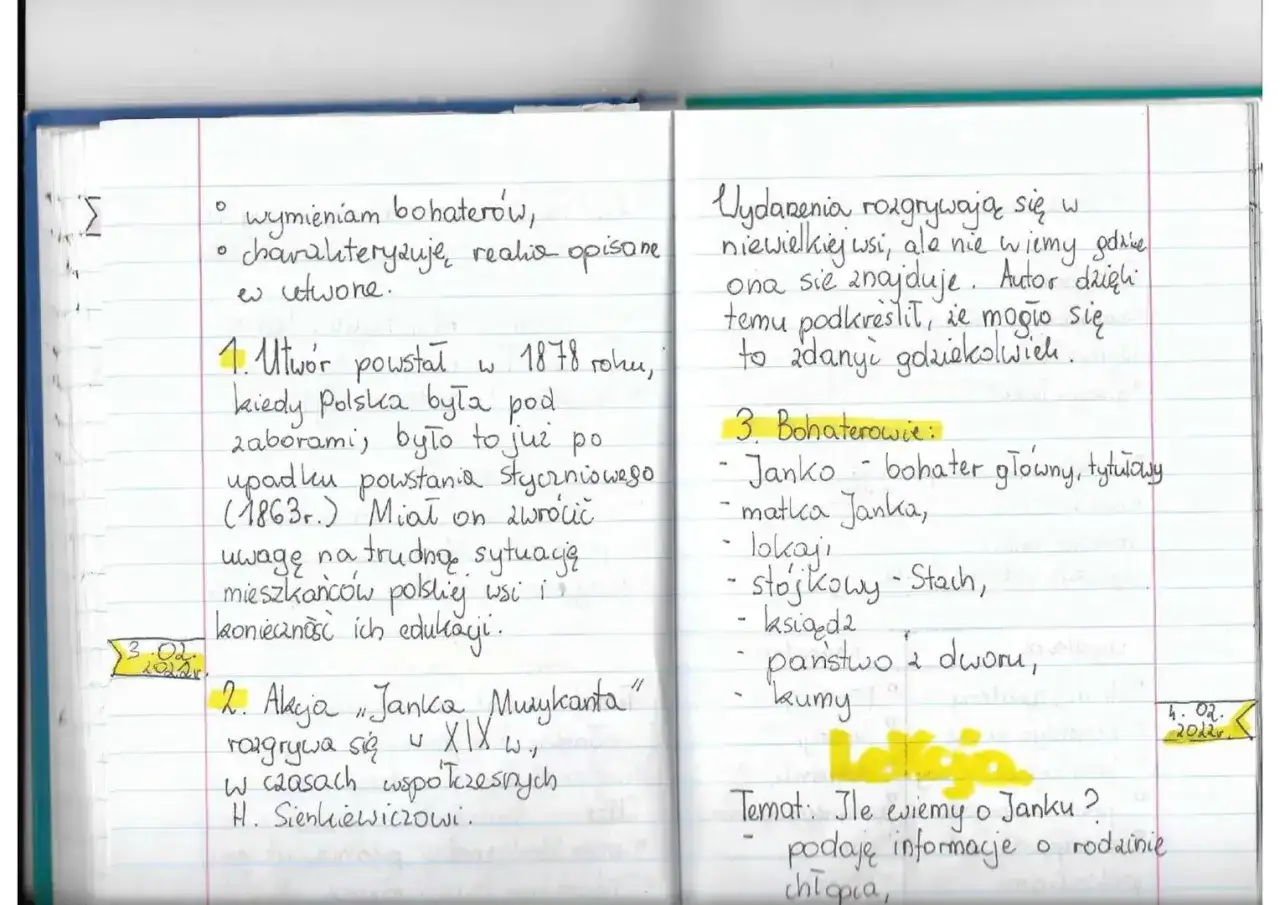 ° wymieniam bohaterów,
° charakteryzuję realia opisane
w utworze.
1. Utwór powstał w 1878 roku,
kiedy Polska była pod
zaborami, było to już po
upadku powstania styczniowego
(1863r.) Miał on zwrócić
uwagę na trudną sytuację
mieszkańców polskiej wsi i
konieczność ich edukacji.
3.02.
2022r.
2. Akcja „Janka Muzykanta"
rozgrywa się w XIX w.,
w czasach współczesnych
H. Sienkiewiczowi.
Wydarzenia rozgrywają się w
niewielkiej wsi, ale nie wiemy gdzie
ona sie znajduje. Autor dzięki
temu podkreślił, że mogło się
to zdażyć gdziekolwiek.
3. Bohaterowie:
- Janko - bohater główny, tytułowy
- matka Janka,
- lokaj,
- stójkowy - Stach,
- ksiądz
- państwo z dworu,
- kumy
4. 02.
2022r.
Lekcja
Temat: Ile wiemy o Janku?
- podaję informacje o rodzinie
chłopca,